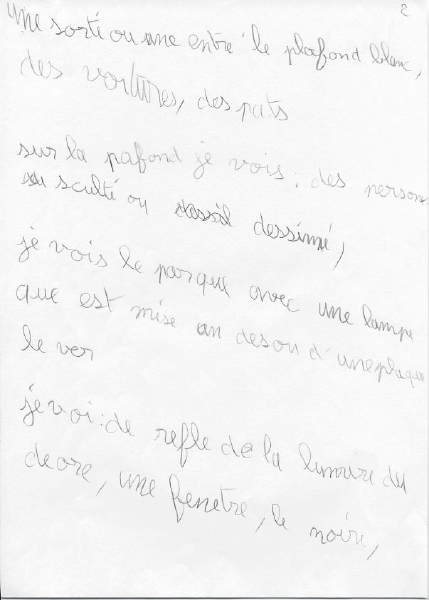 2
une sorté ou une entré le plafond blanc,
des voitures, des pots
sur la pafond je vois : des person
ou sculté ou dessimé,
je vois le parque avec une lampe
que est mise an desou d'une plaque
le ver
je voi : de refle de la lumure du
deore, une fenetre, le noire,